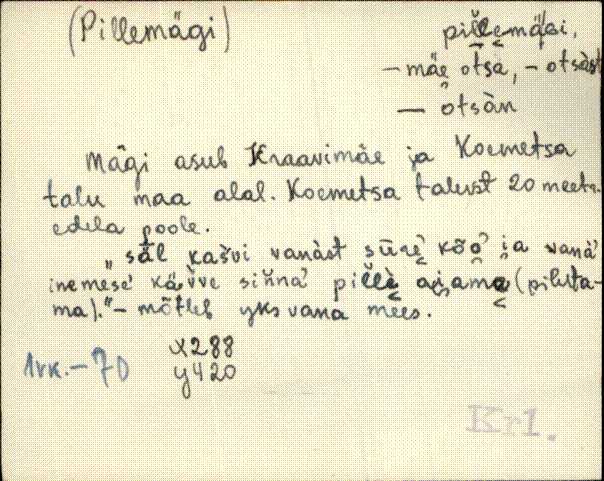 (Pillemägi)
pillemägi,
-mäe otsa, -otsàst
- otsàn
Mägi asub Kraavimäe ja Koemetsa
talu maa alal. Koemetsa talust 20 meetr.
edela poole.
"säl kašvi vanàst sūrè kõo' ja vana'
inemese' kävve sinna' pillè ajama (pilluta-
ma)." - mõtleb yks vana mees.
Ark. - 70
x288
y420
Kr1.